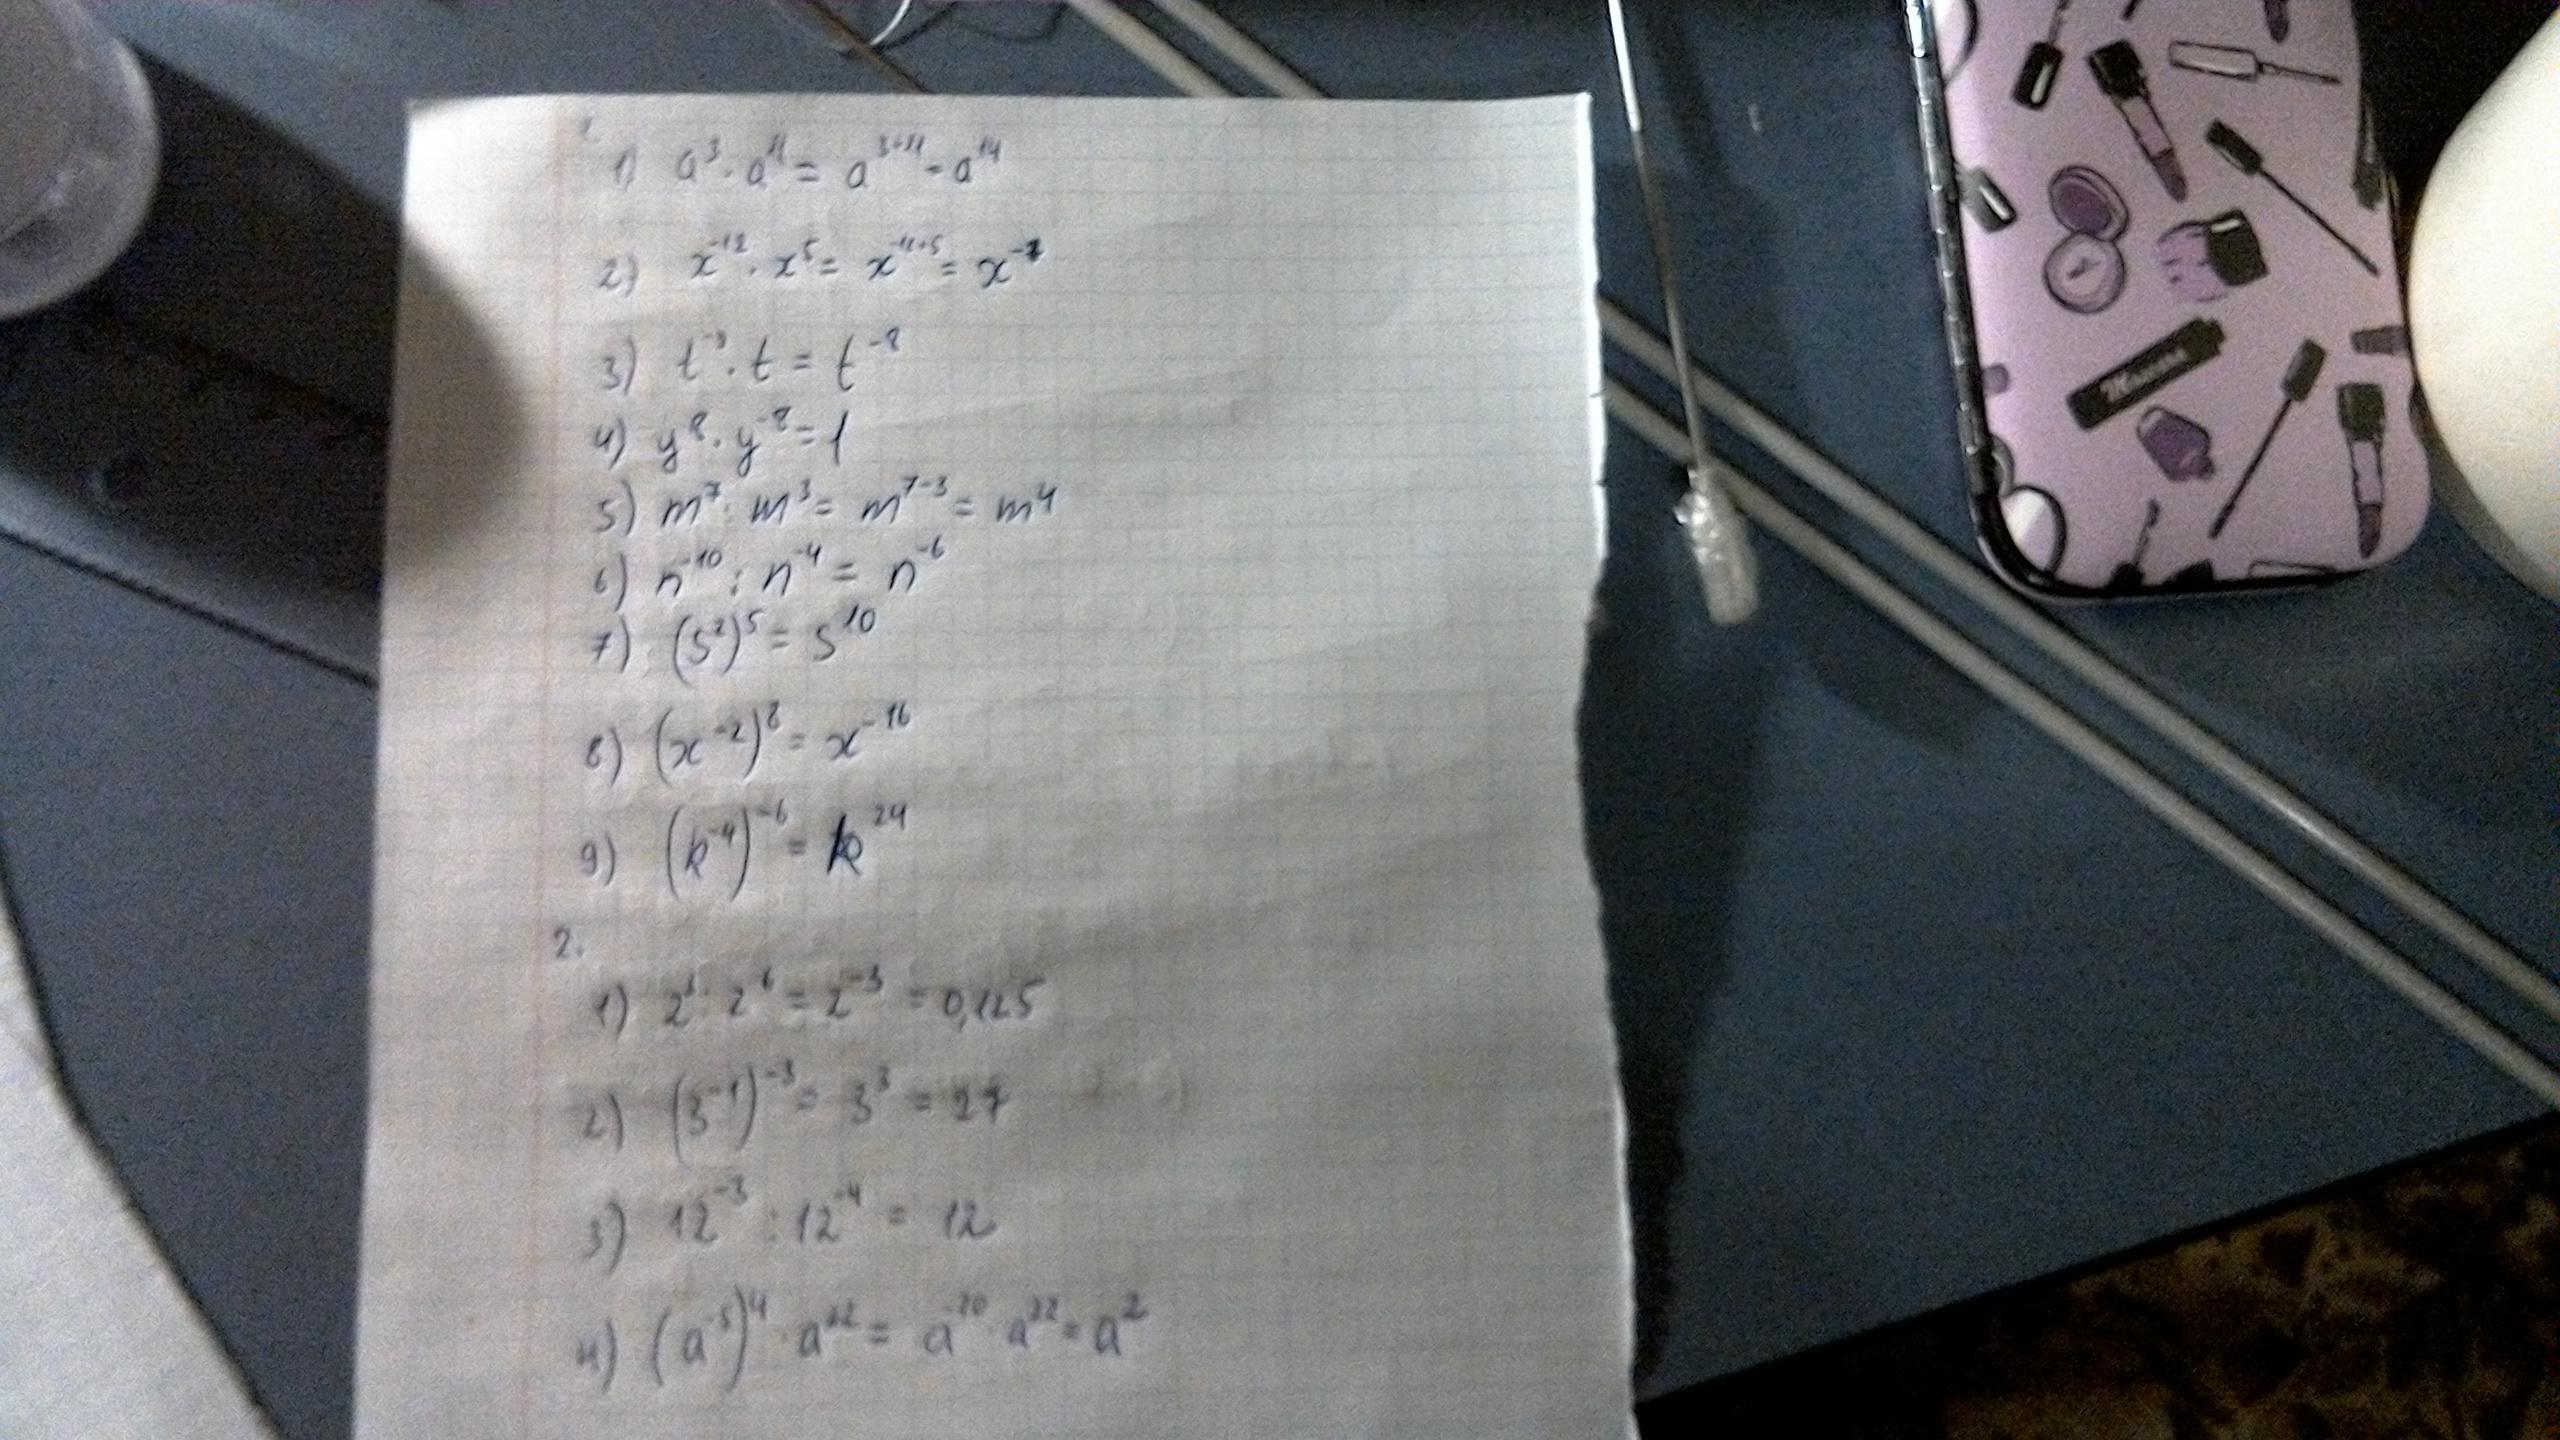 1.
1) a³ · a¹¹ = a³⁺¹¹ = a¹⁴
2) x⁻¹² · x⁵ = x⁻¹²⁺⁵ = x⁻⁷
3) t⁻⁹ · t = t⁻⁸
4) y⁸ · y⁻⁸ = 1
5) m⁷ : m³ = m⁷⁻³ = m⁴
6) n⁻¹⁰ : n⁻⁴ = n⁻⁶
7) (s²)⁵ = s¹⁰
8) (x⁻²)⁸ = x⁻¹⁶
9) (k⁻⁴)⁻⁶ = k²⁴
2.
1) = 2⁻³ = 0,125
2) (3⁻¹)⁻³ = 3³ = 27
3) 12⁻³ : 12⁻⁴ = 12
4) (a⁻⁵)⁴ · a²² = a⁻²⁰ · a²² = a²